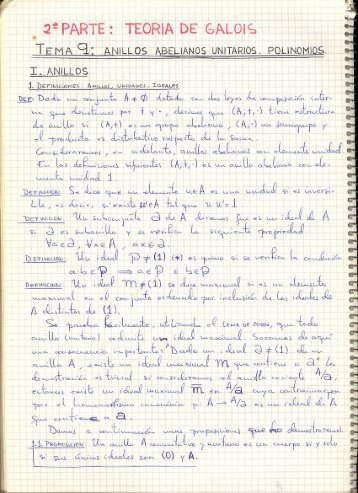 2ª PARTE: TEORIA DE GALOIS
TEMA 9: ANILLOS ABELIANOS UNITARIOS. POLINOMIOS.
I. ANILLOS
1. DEFINICIONES. ANILLOS, UNIDADES, IDEALES
DEF: Dado un conjunto A ≠ ∅ dotado con dos leyes de composición inter-
na que denotamos por + y ·, decimos que (A,+,·) tiene estructura
de anillo si (A,+) es un grupo abeliano, (A,·) un semigrupo y
el producto es distributivo respecto de la suma.
Consideraremos, en adelante, anillos abelianos con elemento unidad.
En las definiciones siguientes (A,+,·) es un anillo abeliano con ele-
mento unidad 1.
DEFINICION: Se dice que un elemento u∈A es una unidad si es inversi-
ble, es decir, si existe u'∈A tal que u·u'=1.
DEFINICION: Un subconjunto a de A diremos que es un ideal de A
si a es subanillo y se verifica la siguiente propiedad
∀a∈a, ∀x∈A, ax∈a.
DEFINICION: Un ideal p ≠ (1) (*) es primo si se verifica la condición
a·b∈p ⟹ a∈p ó b∈p
DEFINICION: Un ideal m ≠ (1) se dice maximal si es un elemento
maximal en el conjunto ordenado por inclusión de los ideales de
A distintos de (1).
Se prueba fácilmente, utilizando el LEMA DE ZORN, que todo
anillo (unitario) admite un ideal maximal. Sacamos de aquí
una consecuencia importante: "Dado un ideal a ≠ (1) de un
anillo A, existe un ideal maximal m que contiene a a". La
demostración es trivial si consideramos el anillo cociente A/a,
entonces existe un ideal maximal m en A/a cuya contraimagen
por el homomorfismo canónico p: A → A/a es un ideal de A
que contiene a a.
Damos a continuación unas proposiciones que no demostraremos.
1.1. PROPOSICION: Un anillo A conmutativo y unitario es un cuerpo si y solo
si sus únicos ideales son (0) y A.